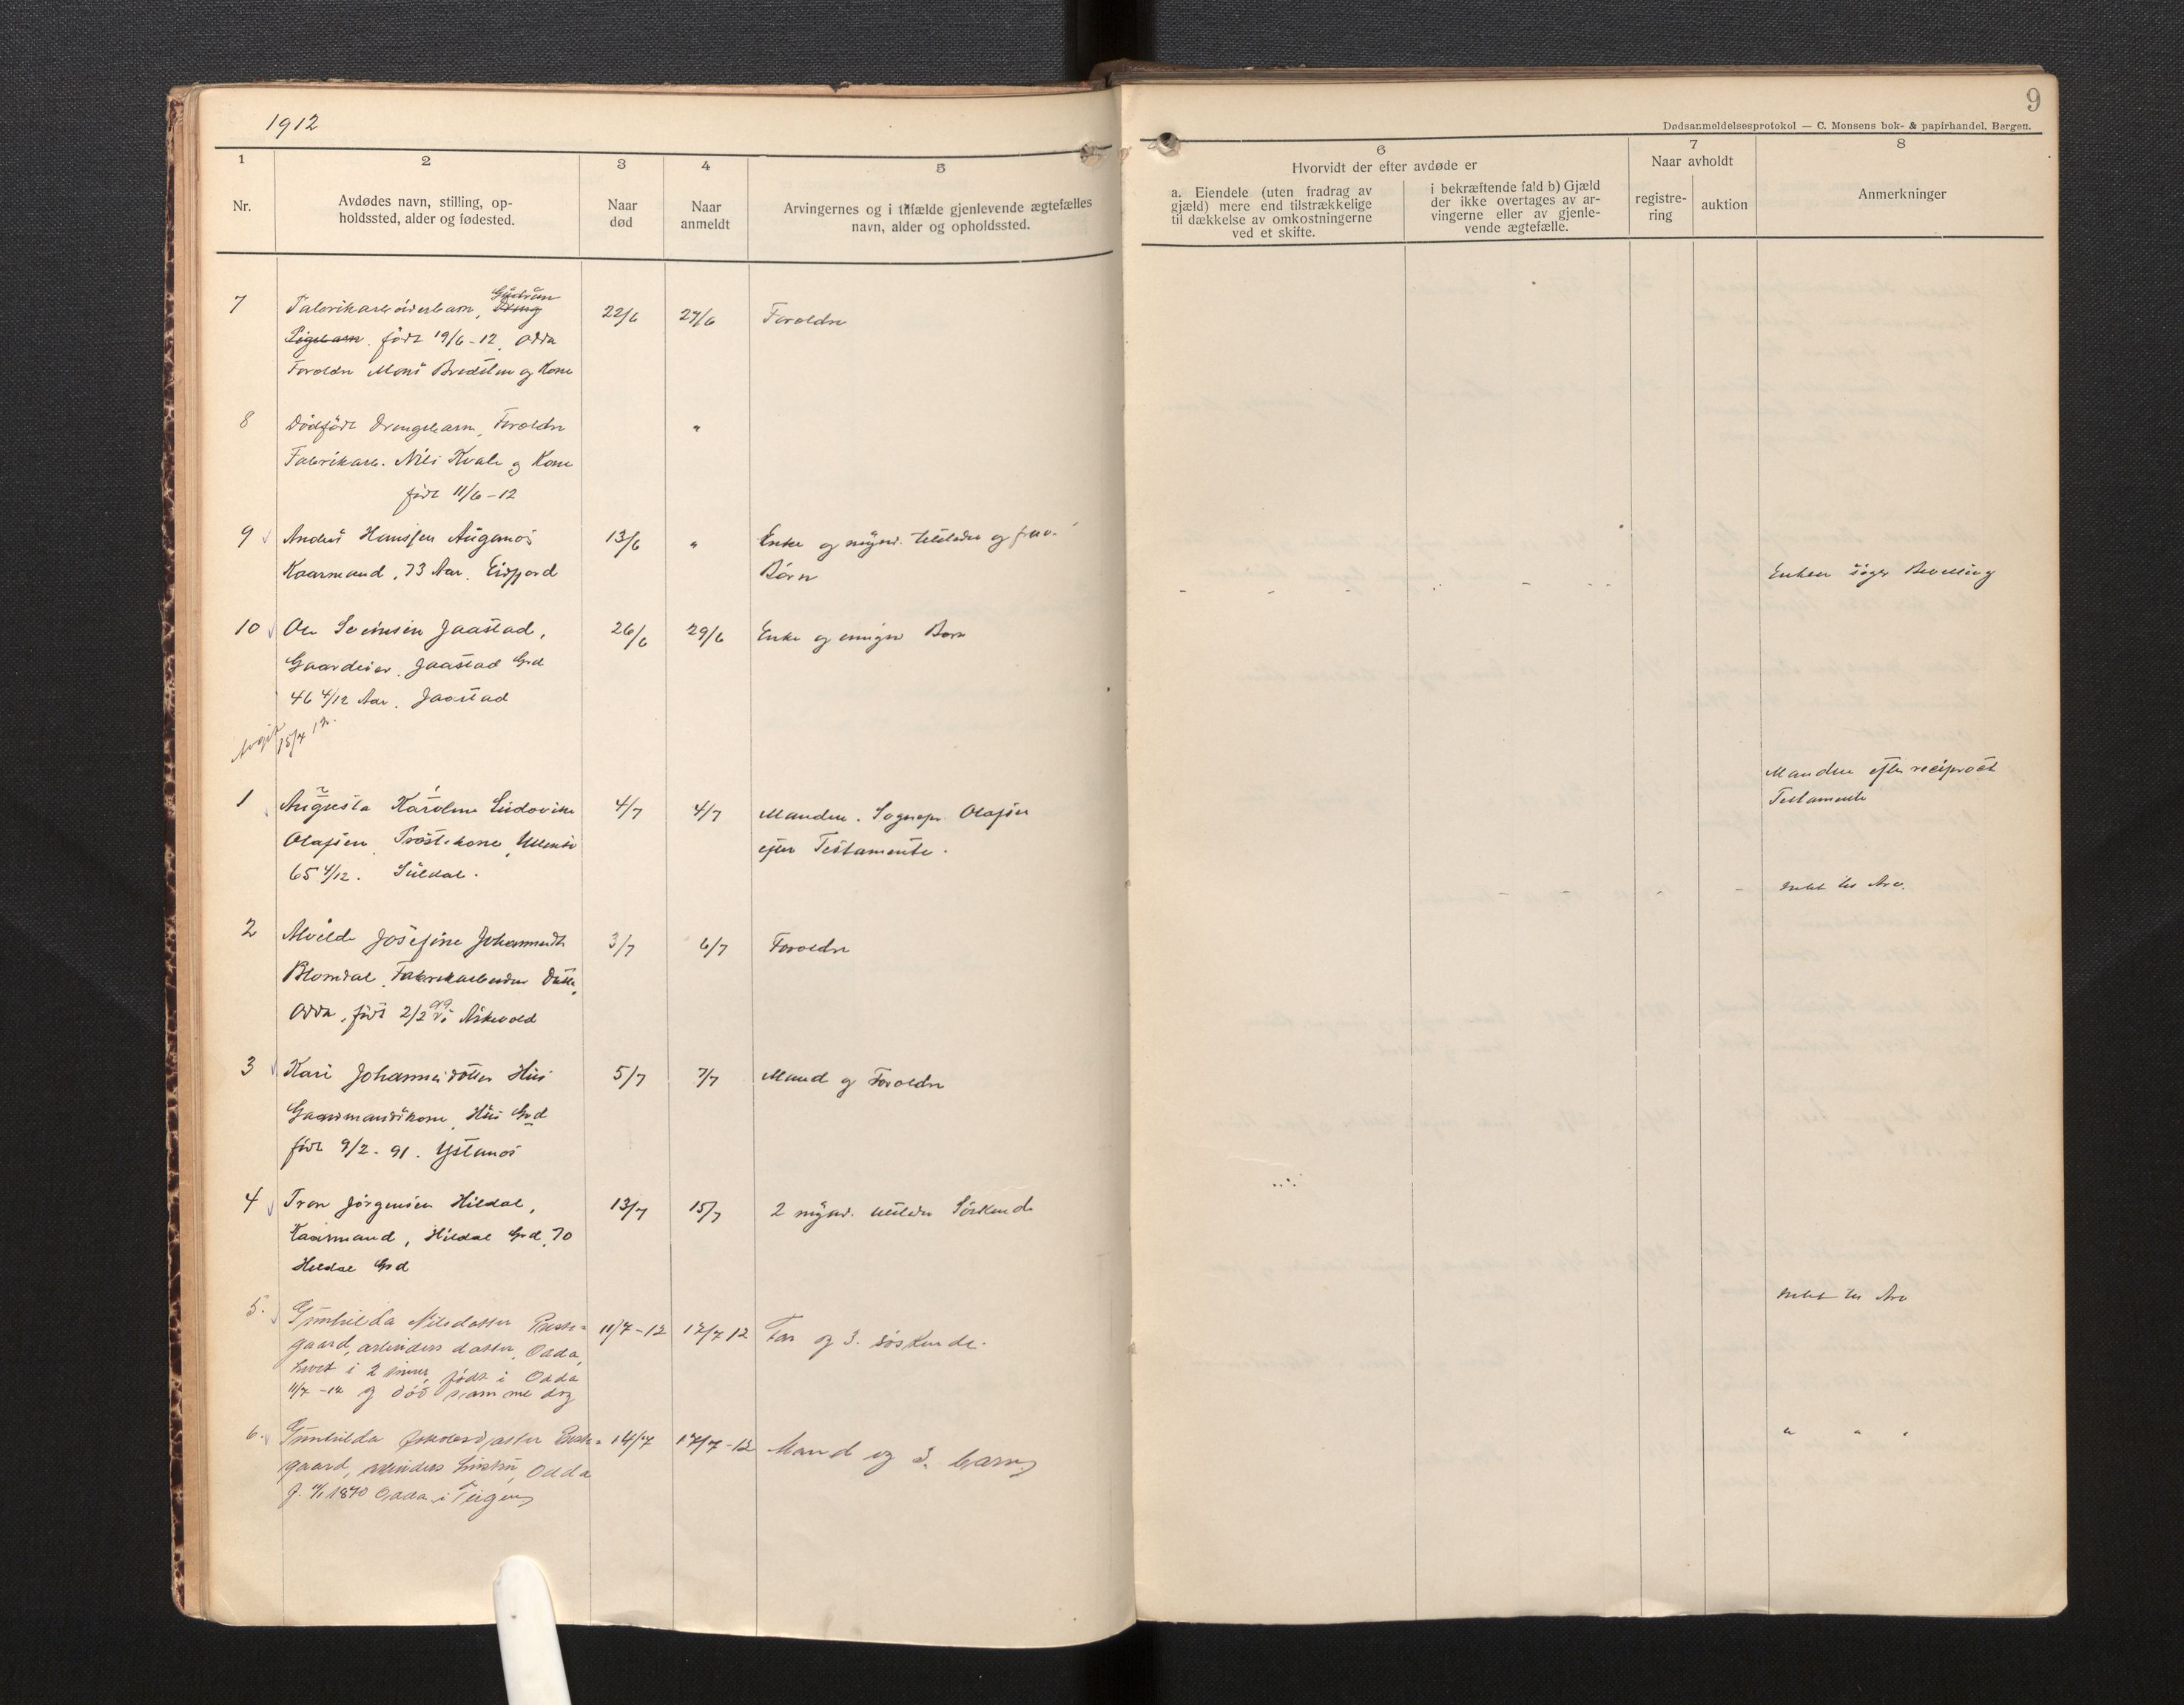 1912
9
Dødsanmeldelsesprotokol — C. Monsens bok- & papirhandel, Bergen.
1
2
3
4
5
6
7
8
Nr.
Avdødes navn, stilling, op-
holdssted, alder og fødested.
Naar
død
Naar
anmeldt
Arvingernes og i tilfælde gjenlevende ægtefælles
navn, alder og opholdssted.
Hvorvidt der efter avdøde er
a. Eiendele (uten fradrag av
gjæld) mere end tilstrækkelige
til dækkelse av omkostningerne
ved et skifte.
i bekræftende fald b) Gjæld
der ikke overtages av ar-
vingerne eller av gjenle-
vende ægtefælle.
Naar avholdt
registre-
ring
auktion
Anmerkninger
Gudrun
7 Fabrikarbeiderbarn, 22/6 27/6 Foroldre
Pigebarn. født 19/6-12. Odda
Foroldre Mons og Kone
8 Dødfødt Drengebarn, Foroldre "
Fabrikarb. Nils Kvale og Kone
født 11/6-12
9 Anders Hansen 13/6 " Enke og mynd. og
Kaarmand, 73 Aar. Eidfjord Børn
Enken søger Bevilling
10 Ole Svensen Jaastad, 26/6 29/6 Enke og Børn
Gaardeier. Jaastad Grd
46 4/12 Aar. Jaastad
15/4
Manden efter reciprokt
Testamente
1 Augusta Karoline Ludovike 4/7 4/7 Manden. Sognepr. Olafsen
Olafsen, Provstekone, Ullensv efter Testamente.
65 4/12. Suldal.
intet til Arv.
2 Alvilde Josefine 3/7 6/7 Foroldre
Blomdal, Fabrikarbeider
Odda, født 2/2 i Askvold
3 Kari Johannesdotter Hus 5/7 7/7 Mand og Foroldre
Gaardmandskone, Hus Grd
født 9/2-91. Ystanes
4 Tron Jørgensen Hildal, 13/7 15/7 2 mynd. Søskende
Kaarmand, Hildal Grd, 70
Hildal Grd
intet til Arv
5. Gunhilda Nilsdatter Preste- 11/7-12 17/7 12 Far og 3. søskende.
gaard, arbeiders datter, Odda,
levet i 2 timer, født i Odda
11/7-12 og død samme dag
6. Gunhilda 14/7 17/7-12 Mand og 3. barn
gaard, arbeiders hustru, Odda
1870 Odda i Teigen
" " "